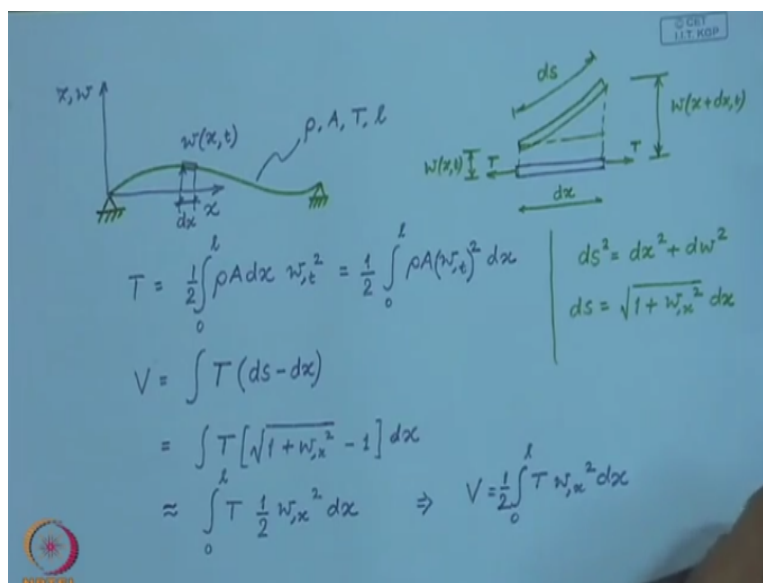 © CET
I.I.T. KGP
z, w
w(x,t)
ρ, A, T, l
dx
x
ds
w(x+dx,t)
w(x,t)
T
T
dx
T = 1/2 ∫₀ˡ ρA dx w,ₜ² = 1/2 ∫₀ˡ ρA(w,ₜ)² dx
ds² = dx² + dw²
ds = √(1 + w,ₓ²) dx
V = ∫ T (ds - dx)
= ∫ T [√(1 + w,ₓ²) - 1] dx
≈ ∫₀ˡ T 1/2 w,ₓ² dx ⇒ V = 1/2 ∫₀ˡ T w,ₓ² dx